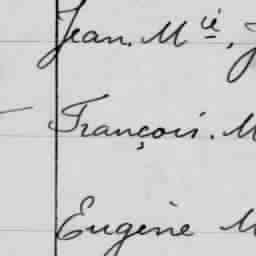 Jean. Mie, J
François. M
Eugène M